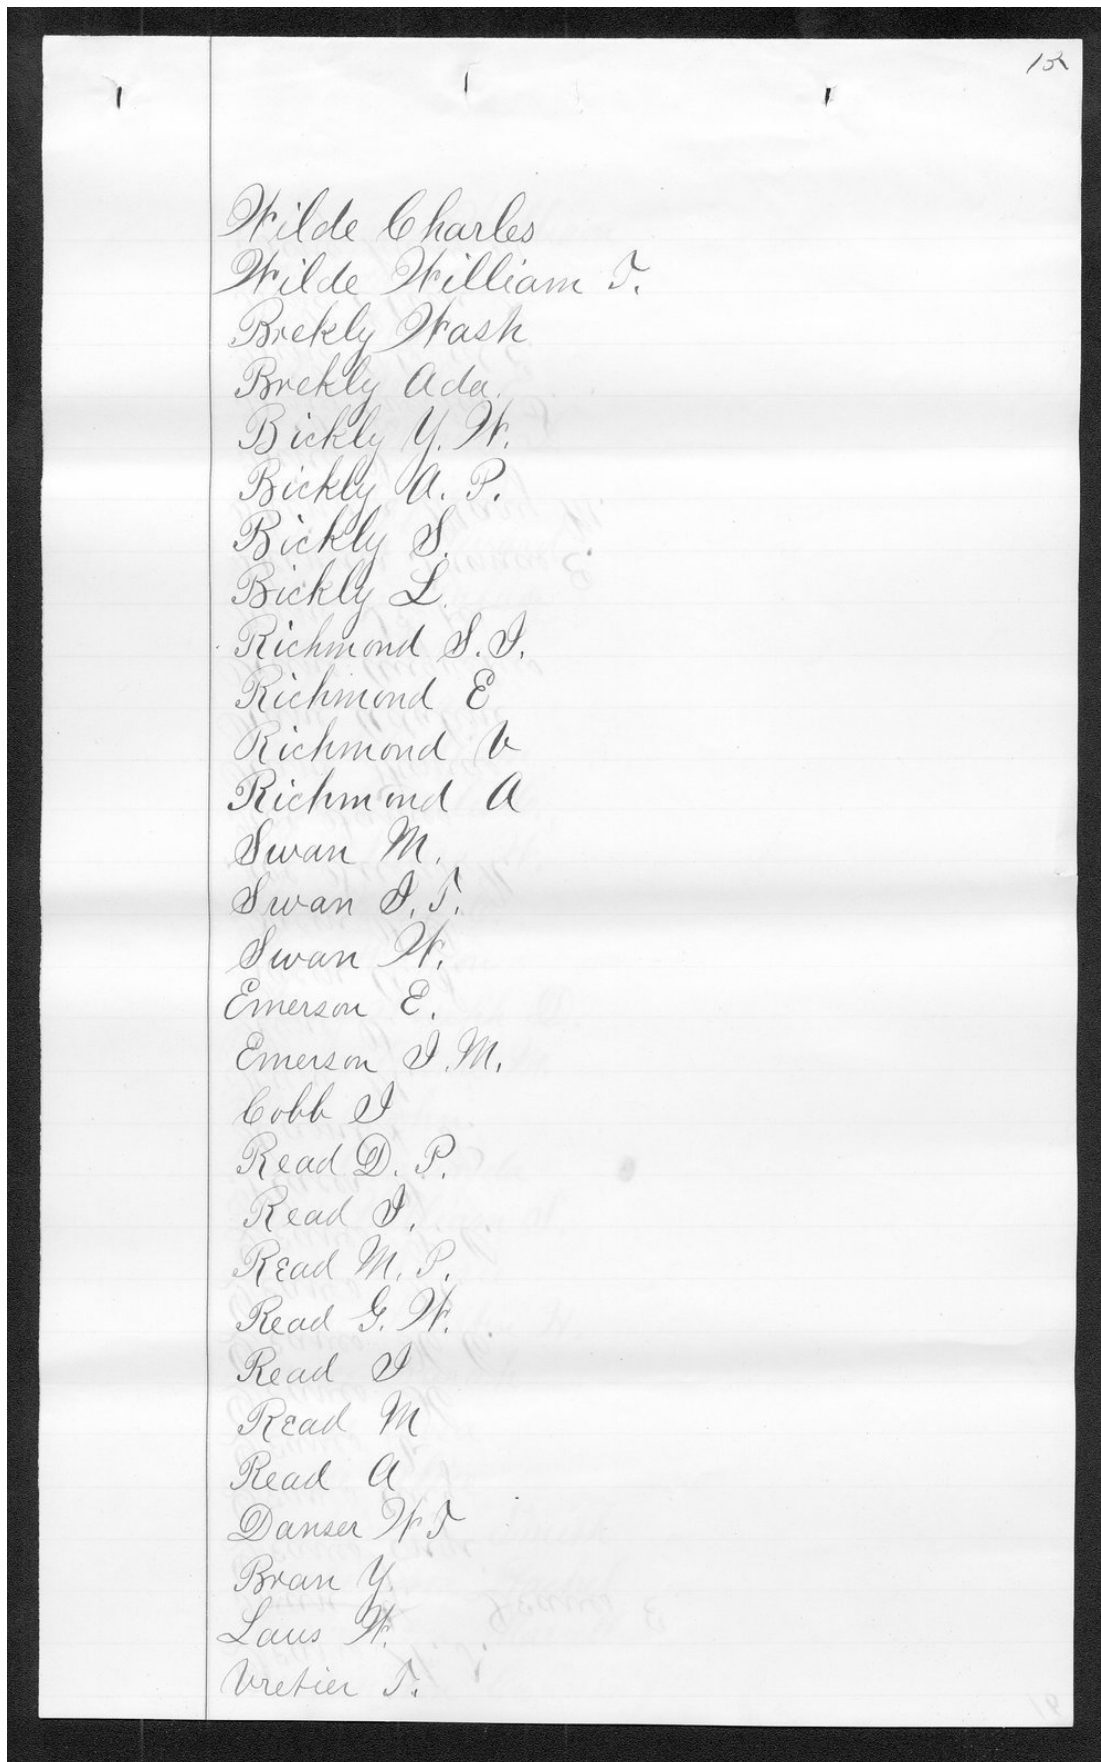 15
Wilde Charles
Wilde William T.
Brekly Wash
Brekly Ada.
Bickly Y. W.
Bickly A. P.
Bickly S.
Bickly L.
Richmond S. I.
Richmond E
Richmond V
Richmond A
Swan M.
Swan I. T.
Swan W.
Emerson E.
Emerson I. M.
Cobb I
Read D. P.
Read I.
Read M. P.
Read G. W.
Read I
Read M
Read A
Danser W T
Bran Y.
Laus W.
Vretier T.